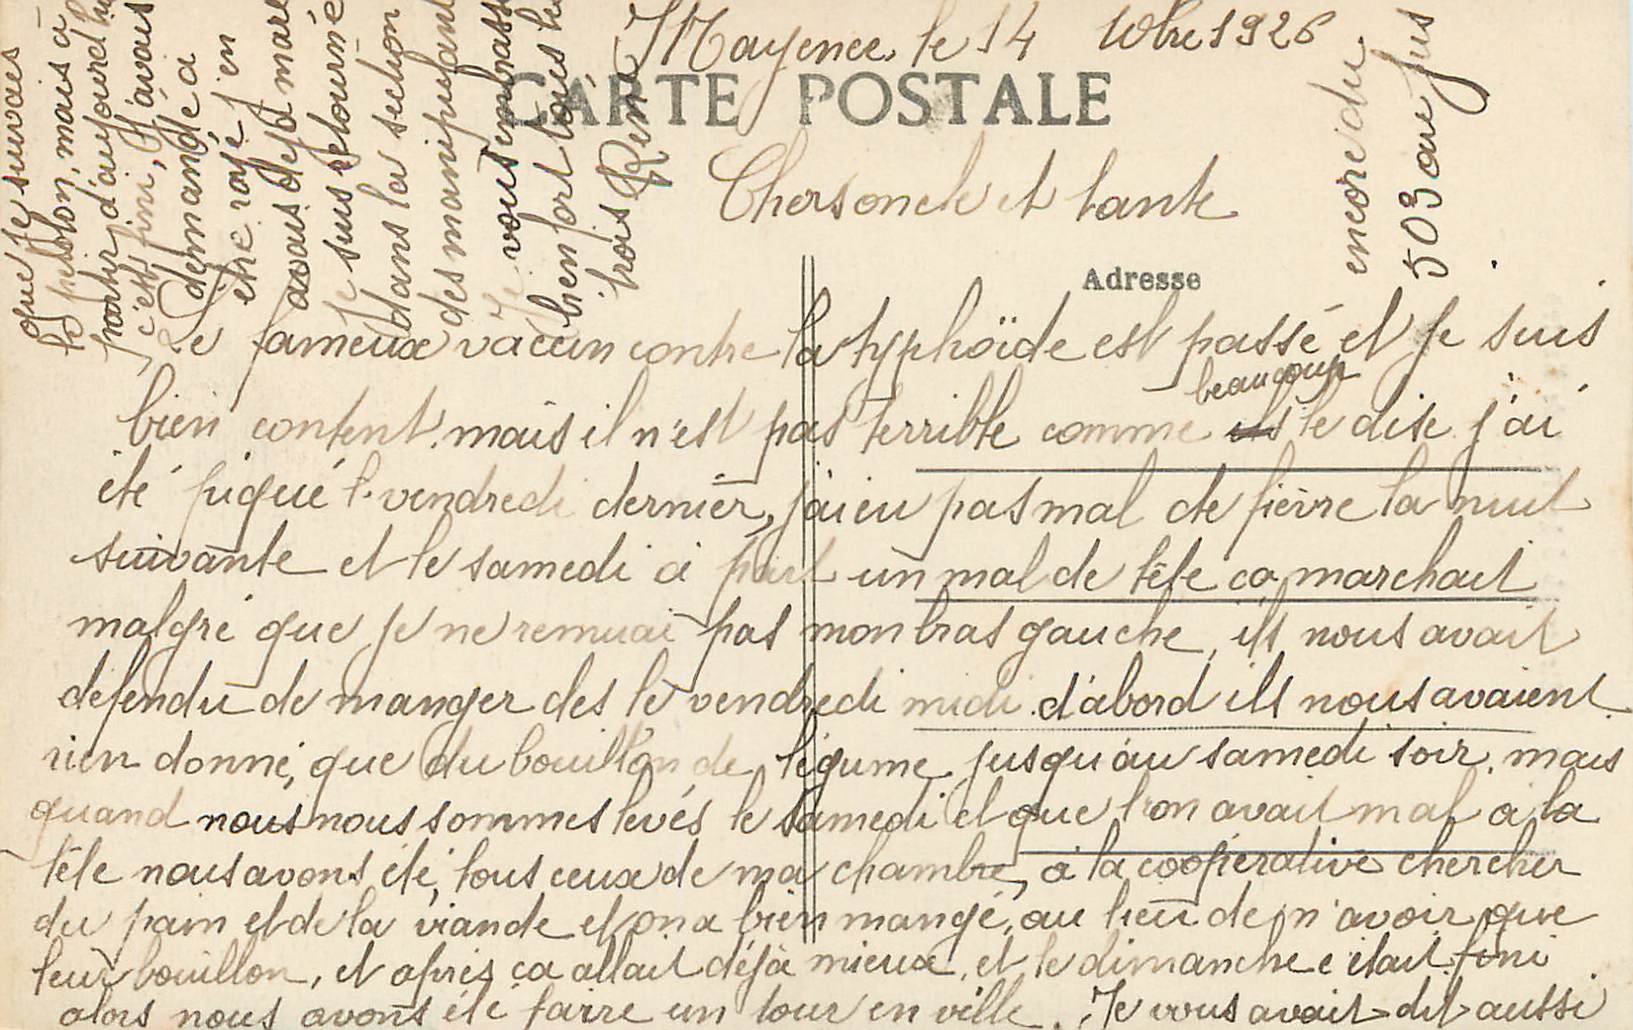 Mayence, le 14 10bre 1926
CARTE POSTALE
Chers oncle et tante
Adresse
Le fameux vaccin contre la typhoïde est passé et je suis
bien content. mais il n'est pas terrible comme beaucoup le dise j'ai
été piqué l. vendredi dernier, j'ai eu pas mal de fièvre la nuit
suivante et le samedi à part un mal de tête ca marchait
malgré que je ne remuai pas mon bras gauche, ils nous avait
défendu de manger des le vendredi midi. d'abord ils nous avaient
rien donné, que du bouillon de légume jusqu'au samedi soir. mais
quand nous nous sommes levés le samedi et que l'on avait mal à la
tête nous avons été, tous ceux de ma chambre, à la coopérative chercher
du pain et de la viande et on a bien mangé, au lieu de n'avoir que
leur bouillon, et après ca allait déjà mieux, et le dimanche c'était fini
alors nous avons été faire un tour en ville. Je vous avait dit aussi
que je suivais
le peloton, mais à
partir d'aujourd'hui
c'est fini, j'avais
demandé a
etre rayé j'en
avais déjà mare
Je suis retourné
dans la section
des manipulant
Je vous embrasse
bien fort tous les
trois René
encore du
503 au jus